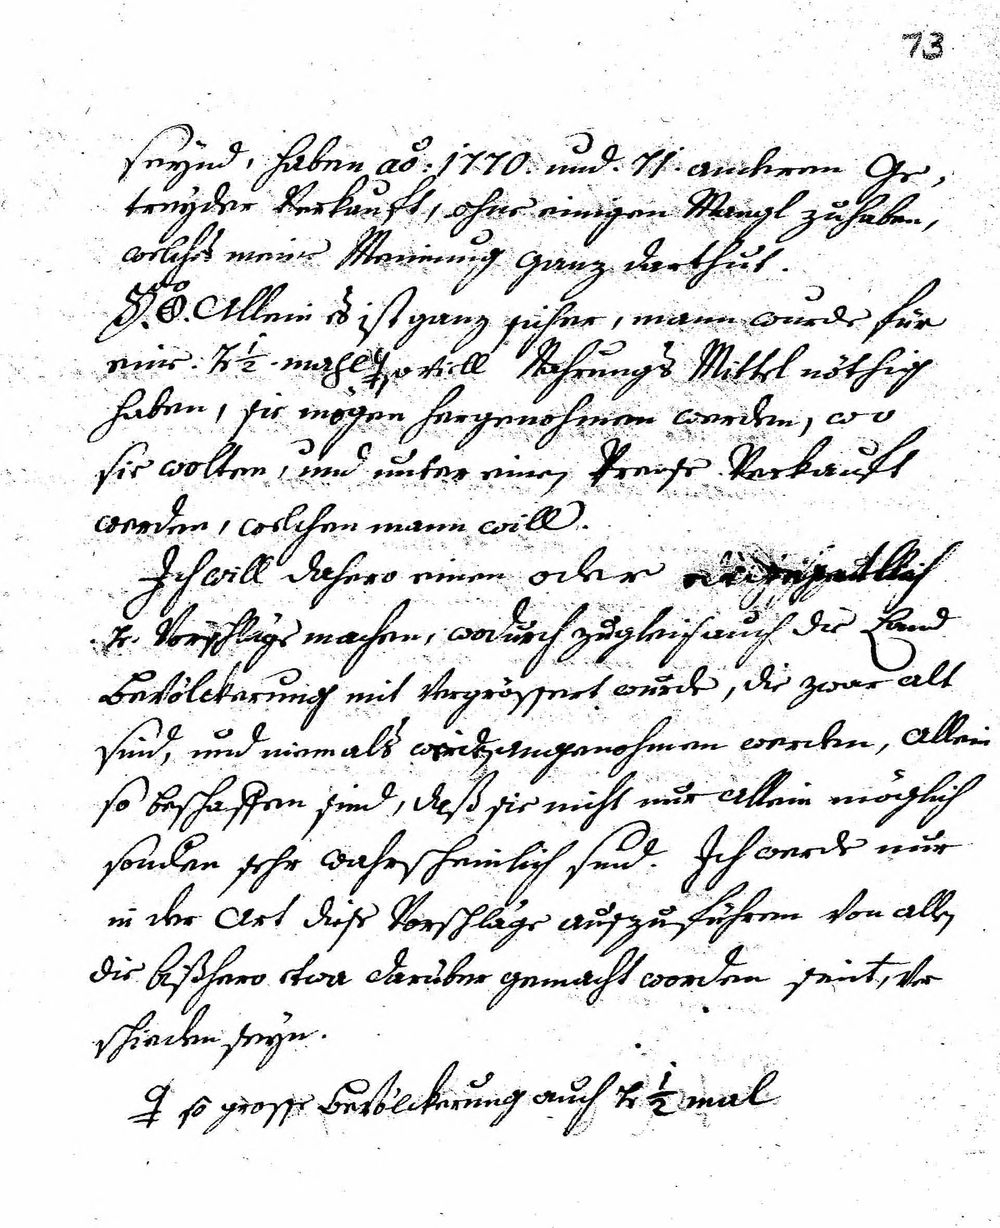 73
seynd, haben aõ: 1770. und. 71. anderen Ge,
treyder Verkauft, ohne einigen Mangl zu haben,
welches meine Meinung ganz darthut.
§. 8. Allein es ist ganz sicher, mann wurde für
eine. 2 1/2 mahl so viell Nahrungs Mittel nöthig
haben, sie mögen hergenohmen werden, wo
sie wolten, und unter einen Preise Verkauft
werden, welchen mann will.
Ich will dahero einen oder
2. Vorschläge machen, wodurch zugleich auch die Land
Bevölckerung mit Vergrössert wurde, die zwar alt
sind, und niemals angenohmen werden, allein
so beschaffen sind, daß sie nicht nur allein möglich
sonden sehr wahrscheinlich sind. Ich werde nur
in der Art diese Vorschläge auszuführen von allen
die bißhero etwa darüber gemacht worden seint, Ver
schieden seyn.
so grosse Bevölckerung auch 2 1/2 mal